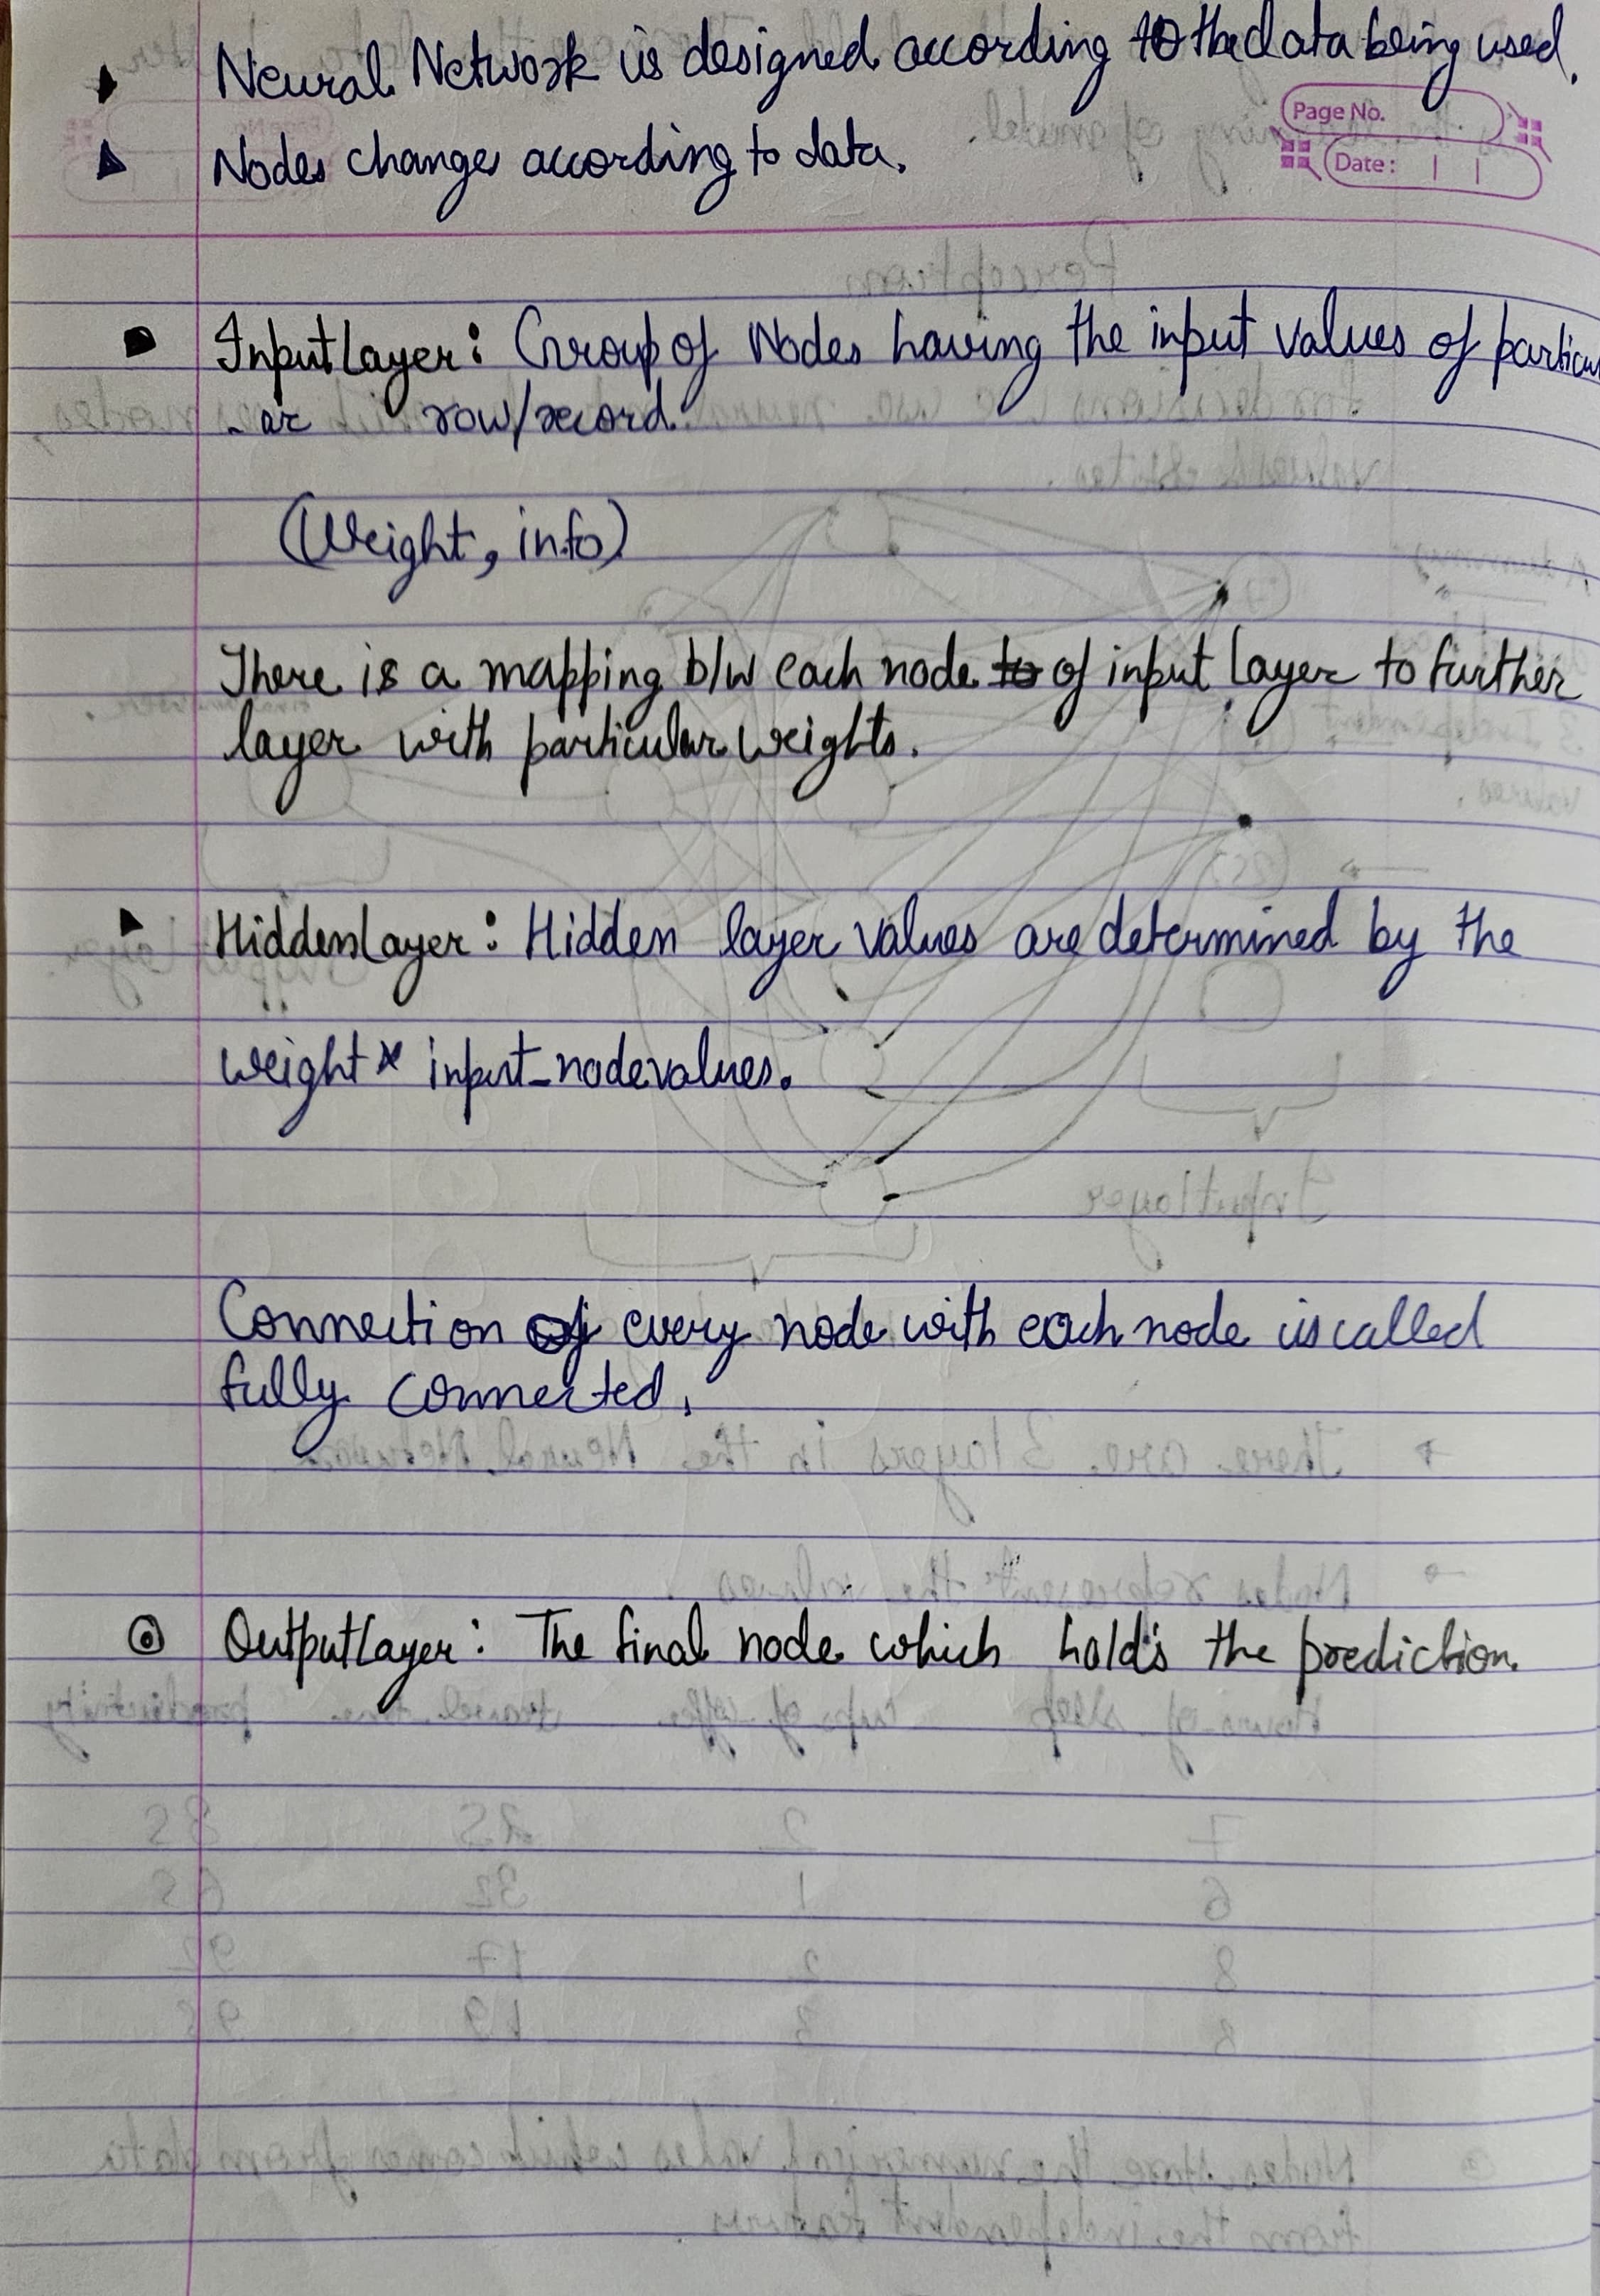 Neural Network is designed according to the data being used.
Page No.
Nodes changes according to data.
Date:
Input Layer: Group of Nodes having the input values of particul
-ar row/record.
(Weight, info)
There is a mapping b/w each node to of input layer to further
layer with particular weights.
Hidden Layer: Hidden layer values are determined by the
weight * input_node values.
Connection of every node with each node is called
fully connected.
Output Layer: The final node which holds the prediction.